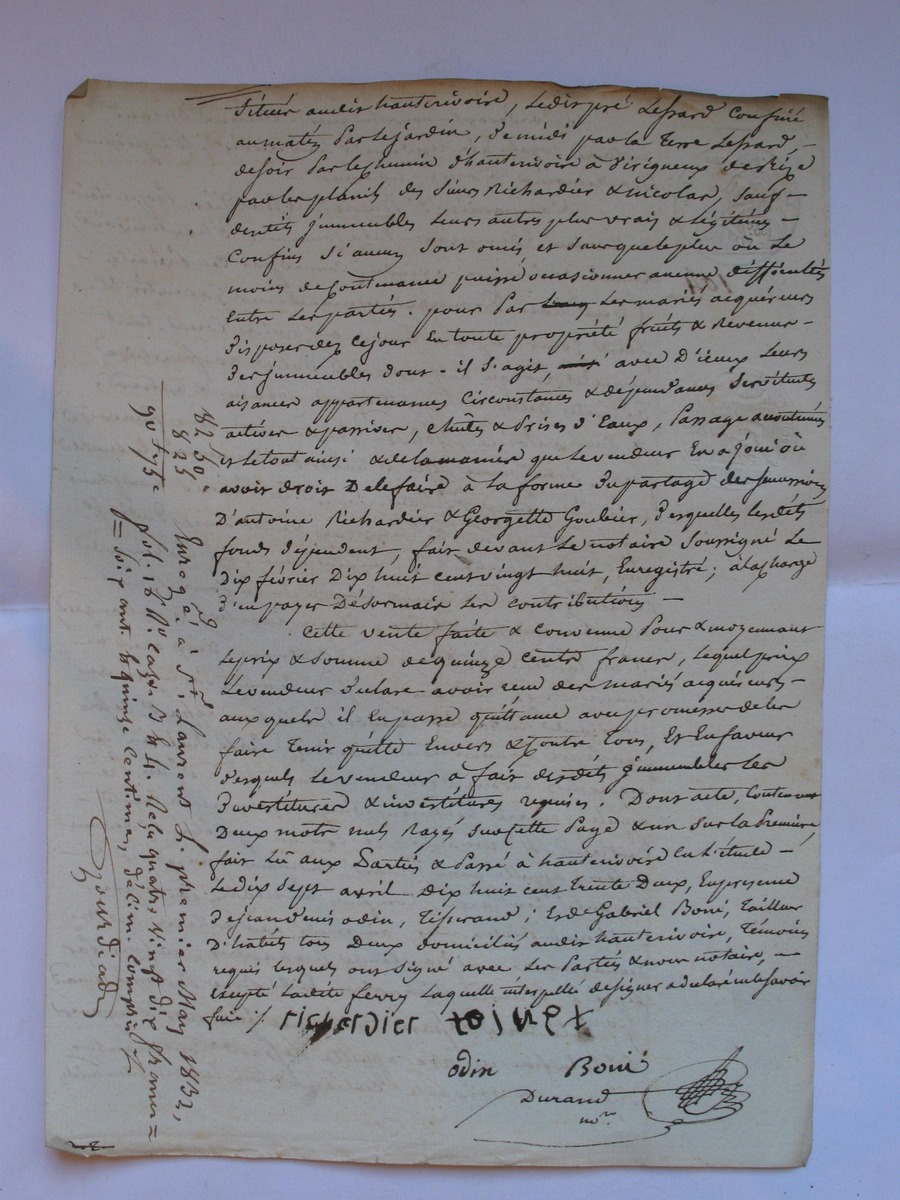 situés audit hauterivoire, Ledit pré Lessard Confiné
au matin Par Le jardin, De midi par la Terre Lessard,
de soir Par le Chemin d'hauterivoire à Virigneux de Bize
par les plants des Sieurs Richardier & nicolas, sauf
desdits jmmeubles Leurs autres plus vrais & Légitimes
Confins Si aucun Sont omis, et Sans que le plus ou Le
moins de Contenance puisse occasionner aucune difficultés
Entre Les parties. pour Par Les mariés acquéreurs
Disposer dez Ce jour En toute propriété fruits & Revenus
Des jmmeubles dont il S'agit, avec D'iceux Leurs
aisances appartenances Circonstances & dépendances Servitudes
actives & passives, Chûtes & Prises d'Eaux, Passages accoutumés
et Le tout ainsi & de la manière que Le vendeur En a joui ou
avoit droit De Le faire à La forme Du partage des Successions
D'antoine Richardier & Georgette Goubier, Desquelles Lesdits
fonds dépendent, fait devant Le notaire Soussigné Le
Dix février Dix huit cent vingt huit, Enregistré; à la charge
D'en payer Désormais Les Contributions
Cette vente faite & Convenue Pour & moyennant
Le prix & Somme de quinze cents francs, Lequel prix
Le vendeur Déclare avoir reçu des mariés acquéreurs
auxquels il En passe quittance avec promesse de les
faire Tenir quitte Envers & Contre Tous, Et En faveur
desquels Le vendeur à fait desdits jmmeubles Les
Devestitures & investitures requises. Dont acte, Contenant
Deux mots nuls Rayés Sur Cette Page & un Sur la Première
fait Lû aux Parties & Passé à hauterivoire En L'étude
Le dix Sept avril Dix huit cent Trente Deux, En présence
De jean Denis odin, Tisserand; Et de Gabriel Boni, Tailleur
D'habits tous Deux domiciliés audit hauterivoire, Témoins
requis lesquels ont Signé avec Les Parties & nous notaire,
Excepté Ladite ferry Laquelle interpellée de signer a déclaré ne le savoir
faire ./.
richardier
odin Boni
Durand
nore
82,50.
8 25
90 f 75c
Enregé à St Laurent le premier May 1832,
fol. Ro Case 3 & 4. Reçu quatre Vingt dix francs
Soixante & quinze Centimes, décime compris
Gourdiad